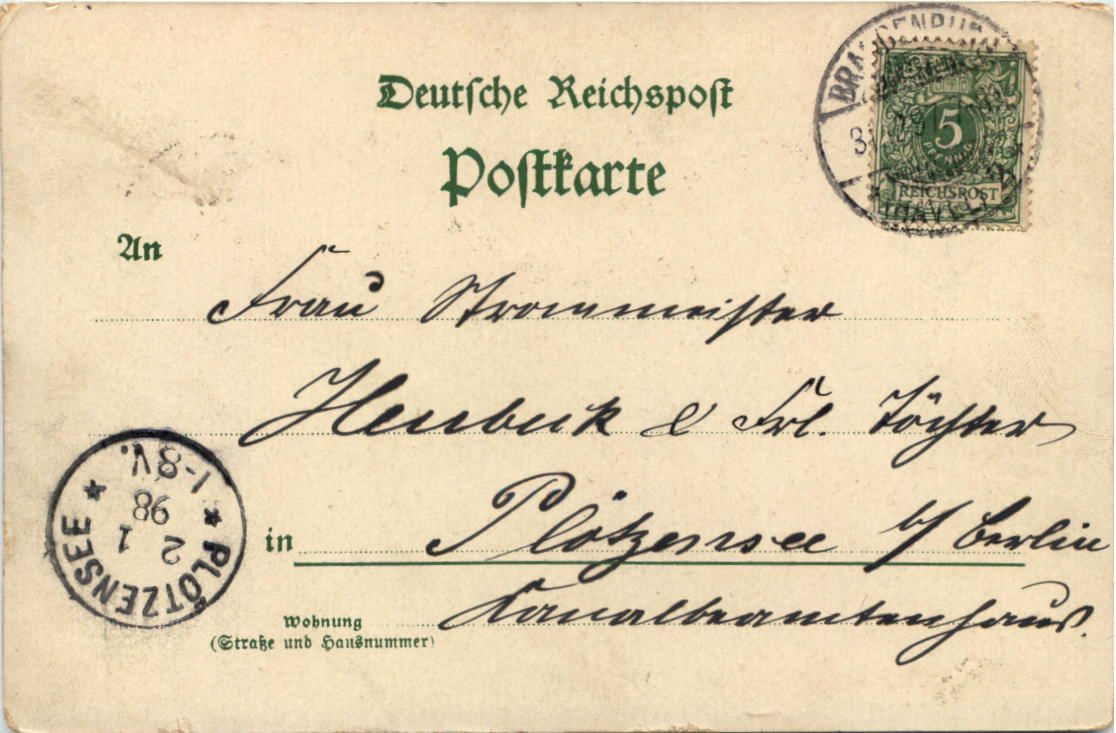 Deutsche Reichspost
Postkarte
BRANDENBURG
(HAVEL)
5
PFENNIG
REICHSPOST
An
Frau Strommeister
Heubeck & Frl. Töchter
in Plötzensee b/ Berlin
Kanalbeamtenhaus.
Wohnung
(Straße und Hausnummer)
PLÖTZENSEE
2 1
98
1-8V.